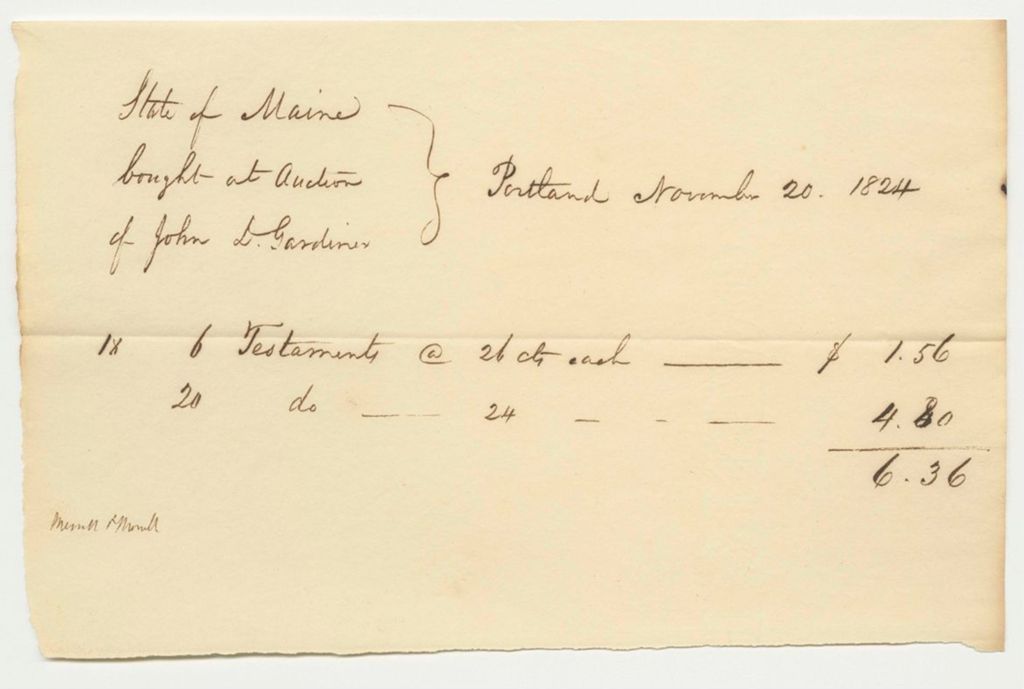 State of Maine
bought at Auction
of John L. Gardiner
Portland November 20. 1824
18 6 Testaments @ 26 cts each $ 1.56
20 do 24 4.80
6.36
Merrill